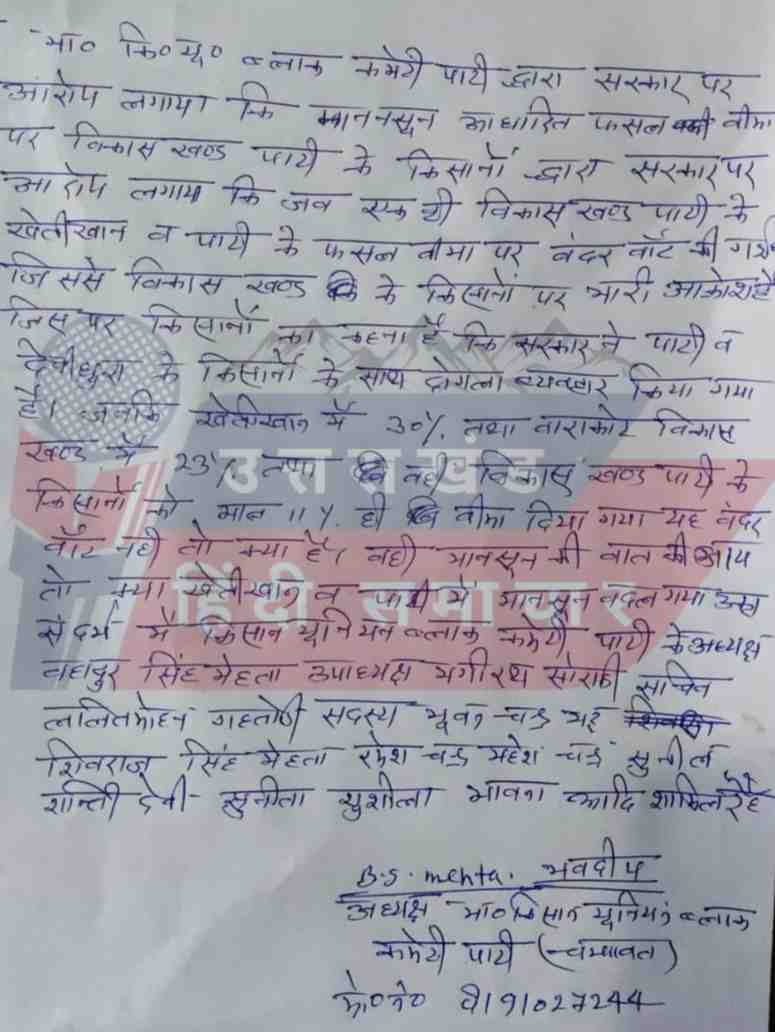 भा० कि० यू० ब्लाक कमेटी पाटी द्वारा सरकार पर
आरोप लगाया कि मानसून आधारित फसल बीमा
पर विकास खण्ड पाटी के किसानों द्वारा सरकार पर
आरोप लगाया कि जब एक ही विकास खण्ड पाटी के
खेतीखान व पाटी के फसल बीमा पर बंदर बाँट की गयी
जिससे विकास खण्ड के किसानों पर भारी आक्रोश है
जिस पर किसानों का कहना है कि सरकार ने पाटी व
देवीधुरा के किसानों के साथ दोगला व्यवहार किया गया
है। जबकि खेतीखान में 30% तथा बाराकोट विकास
खण्ड में 23% तथा वही विकास खण्ड पाटी के
किसानों को मात्र 11% ही बीमा दिया गया यह बंदर
बाँट नही तो क्या है। वही मानसून की बात की जाय
तो क्या खेतीखान व पाटी में मानसून बदल गया उक्त
संदर्भ में किसान यूनियन ब्लाक कमेटी पाटी के अध्यक्ष
बहादुर सिंह मेहता उपाध्यक्ष भगीरथ सोराडी सचिव
ललित मोहन गहतोडी सदस्य भूवन चन्द्र भट्ट
शिवराज सिंह मेहता रमेश चन्द्र महेश चन्द्र सुनील
शान्ती देवी सुनीता सुशीला भावना आदि शामिल रहे
B.S. mehta. भवदीय
अध्यक्ष भा० किसान यूनियन ब्लाक
कमेटी पाटी (चम्पावत)
मो० ने०
उत्तराखंड
हिंदी समाचार